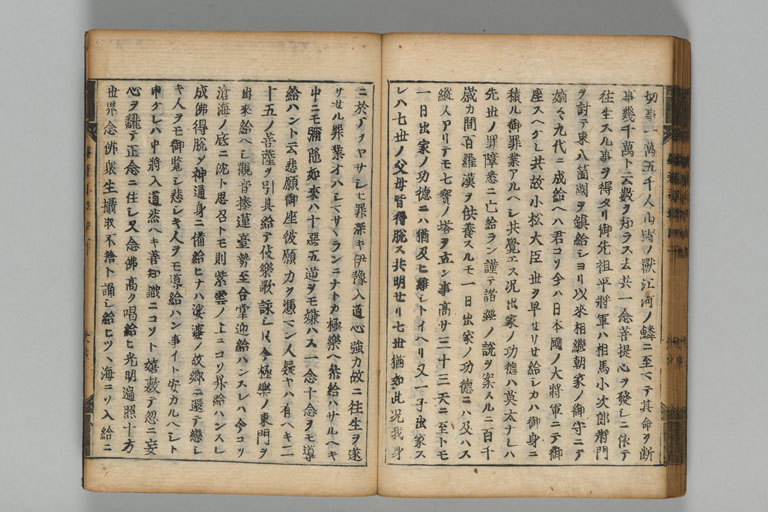 切事一萬五千人山野ノ獣江河ノ鱗ニ至マテ其命ヲ断
事幾千萬ト云数ヲ知ラス去共一念菩提心ヲ発シニ依テ
往生スル事ヲ得タリ御先祖平將軍ハ相馬小次郎將門
ヲ討テ東八箇國ヲ鎮給シヨリ以来相継朝家ノ御守ニテ
嫡々九代ニ成給ヘハ君コソ今ハ日本國ノ大將軍ニテ御
座スヘケレ共故小松大臣世ヲ早セサセ給シカハ御身ニ
積ル御罪業アルヘシ共覚エス况出家ノ功徳ハ莫太ナレハ
先世ノ罪障悉ニ亡給ラン謹テ諸經ノ説ヲ案スルニ百千
歳カ間百羅漢ヲ供養スルモ一日出家ノ功徳ニハ及ハス
縦人アリテモ七寳ノ塔ヲ立ン事高サ三十三天ニ至トモ
一日出家ノ功徳ニハ猶及ヒ難シトイヘリ又一子出家ス
レハ七世ノ父母皆得脱ス共明セリ七世猶如此况我身
ニ於テヲヤサシモ罪深キ伊豫入道心強力故ニ往生ヲ遂
サセル罪業オハシマサヽランニナトカ極樂ヘ参給ハサルヘキ
中ニモ彌陀如来ハ十惡五逆ヲモ嫌ハス一念十念ヲモ導
給ハント云悲願御座彼願力ヲ憑マン人疑ヤハ有ヘキ二
十五ノ菩薩ヲ引具給テ伎樂歌詠シ只今極樂ノ東門ヲ
出来給ヘシ観音捧蓮臺勢至合掌迎給ハンスレハ今コソ
滄海ノ底ニ沈ト思召トモ則紫雲ノ上ニコソ昇給ハンスレ
成佛得脱ノ神通身ニ備給ヒナハ娑婆ノ故郷ニ還テ戀シ
キ人ヲモ御覧シ悲シキ人ヲモ導給ハン事イト安カルヘシト
申ケレハ中將入道然ヘキ善知識ニコソト嬉敷テ忽ニ妄
心ヲ飜テ正念ニ住シ又念佛高ク唱給ヒ光明遍照十方
世界念佛衆生攝取不捨ト誦シ給ヒツヽ海ニソ入給ニ